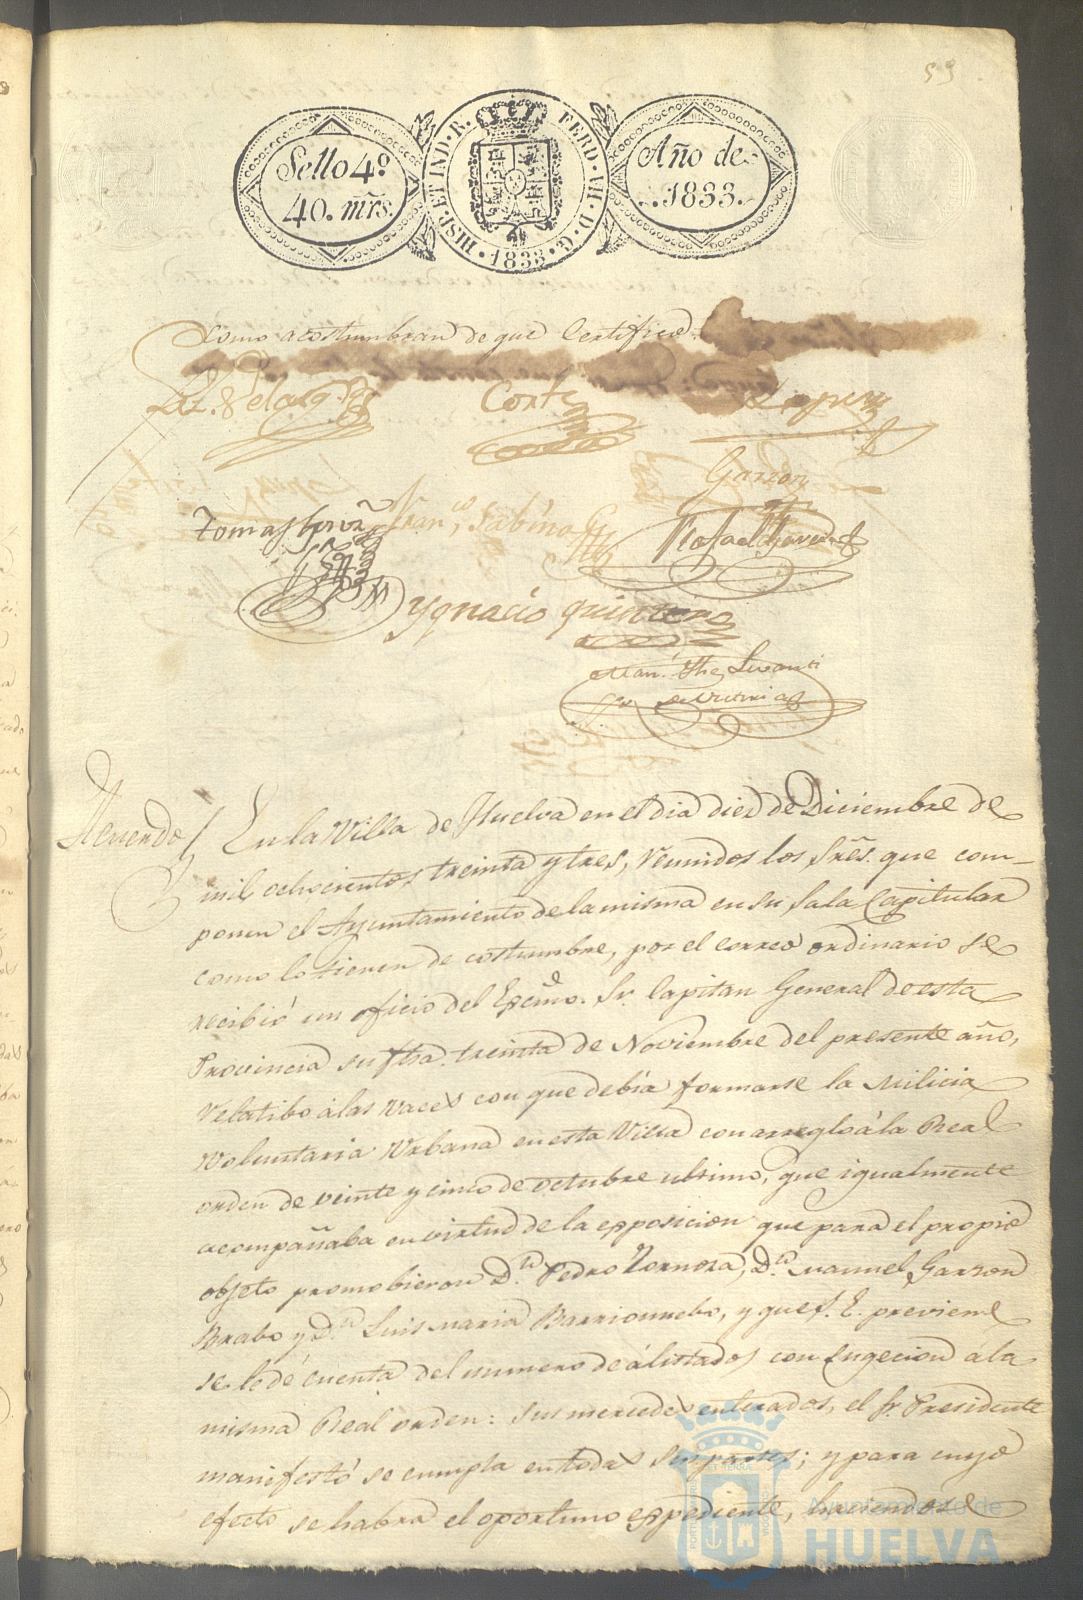 59
Sello 4º
40. mrs.
HISP. ET IND. R. FERD. VII. D. G. 1833
Año de
1833.
como acostumbran de que Certifico.
Corte
Lopez
Garzon
Ygnacio Quintero
Acuerdo / En la Villa de Huelva en el dia diez de Diciembre de
mil ochocientos treinta y tres, reunidos los Sres. que com-
ponen el Ayuntamiento de la misma en su Sala Capitular
como lo tienen de costumbre, por el correo ordinario se
recibió un oficio del Excmo. Sr. Capitan General de esta
Provincia su fha. treinta de Noviembre del presente año,
relatibo á las vaces con que debía formarse la Milicia
Voluntaria Urbana en esta Villa con arreglo á la Real
orden de veinte y cinco de octubre ultimo, que igualmente
acompañaba en virtud de la exposicion que para el propio
objeto promobieron Dn. Pedro Zornoza, Dn. Manuel Garzon
Brabo y Dn. Luis Maria Barrionuebo, y que S. E. previene
se le dé cuenta del numero de alistados con sugecion á la
misma Real orden: Sus mercedes enterados, el Sr. Presidente
manifestó se cumpla en todas sus partes; y para cuyo
efecto se habra el oportuno expediente, haciendose
Ayuntamiento de
HUELVA